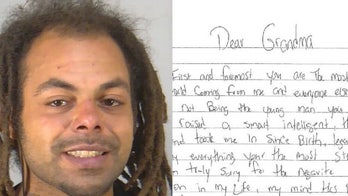 Dear Grandma
First and foremost you are the most
Coming from me and everyone else
not Being the young man you
raised a smart intelligent, th
and took me in Since Birth,
everything your the most
truly Sorry to the negative
in my life, my mind